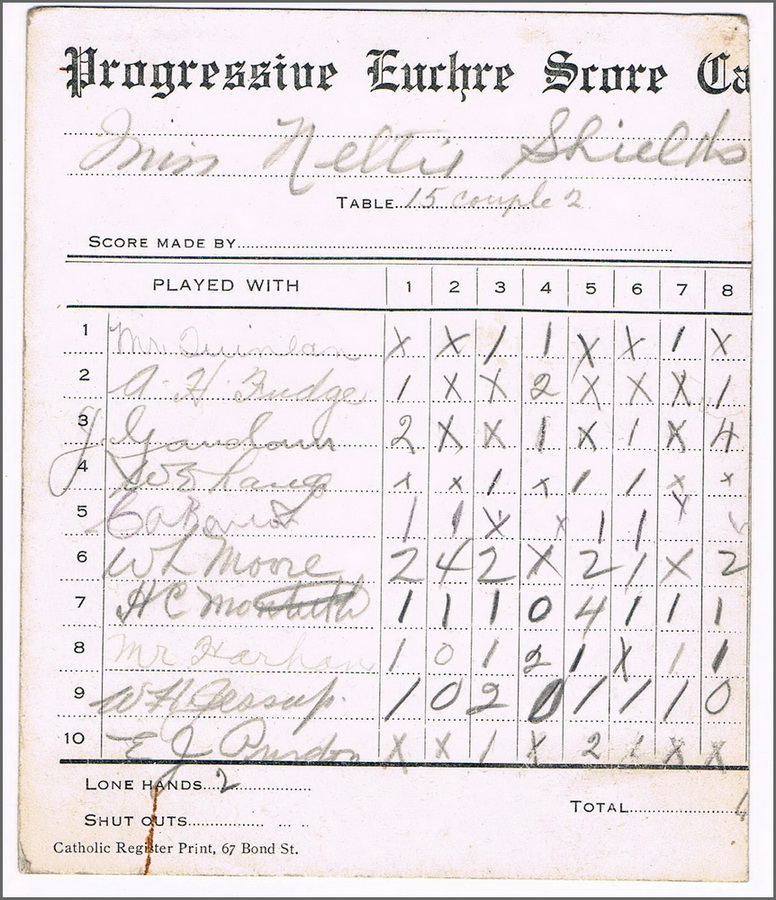 Progressive Euchre Score Ca
Miss Nettie Shields
TABLE 15 couple 2
SCORE MADE BY
PLAYED WITH 1 2 3 4 5 6 7 8
1 Mr. Quinlan X X 1 1 X X 1 X
2 A. H. Fudge 1 X X 2 X X X 1
3 J. 2 X X 1 X 1 X 4
4 X X 1 X 1 1 X X
5 1 1 X X 1 1 X X
6 W L Moore 2 4 2 X 2 1 X 2
7 H C 1 1 1 0 4 1 1 1
8 Mr 1 0 1 2 1 X 1 1
9 W H Jessup. 1 0 2 0 1 1 1 0
10 E J Purdon X X 1 X 2 1 X X
LONE HANDS 2
TOTAL
SHUT OUTS
Catholic Register Print, 67 Bond St.